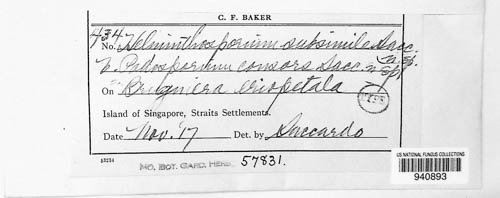 C. F. BAKER
434
No. Helminthosporium subsimile Sacc. n. sp.
& Podosporium consors Sacc. n. sp.
On Bruguiera eriopetala
Island of Singapore, Straits Settlements.
Date Nov. '17 Det. by Saccardo
MO. BOT. GARD. HERB. 57831.
US NATIONAL FUNGUS COLLECTIONS
940893